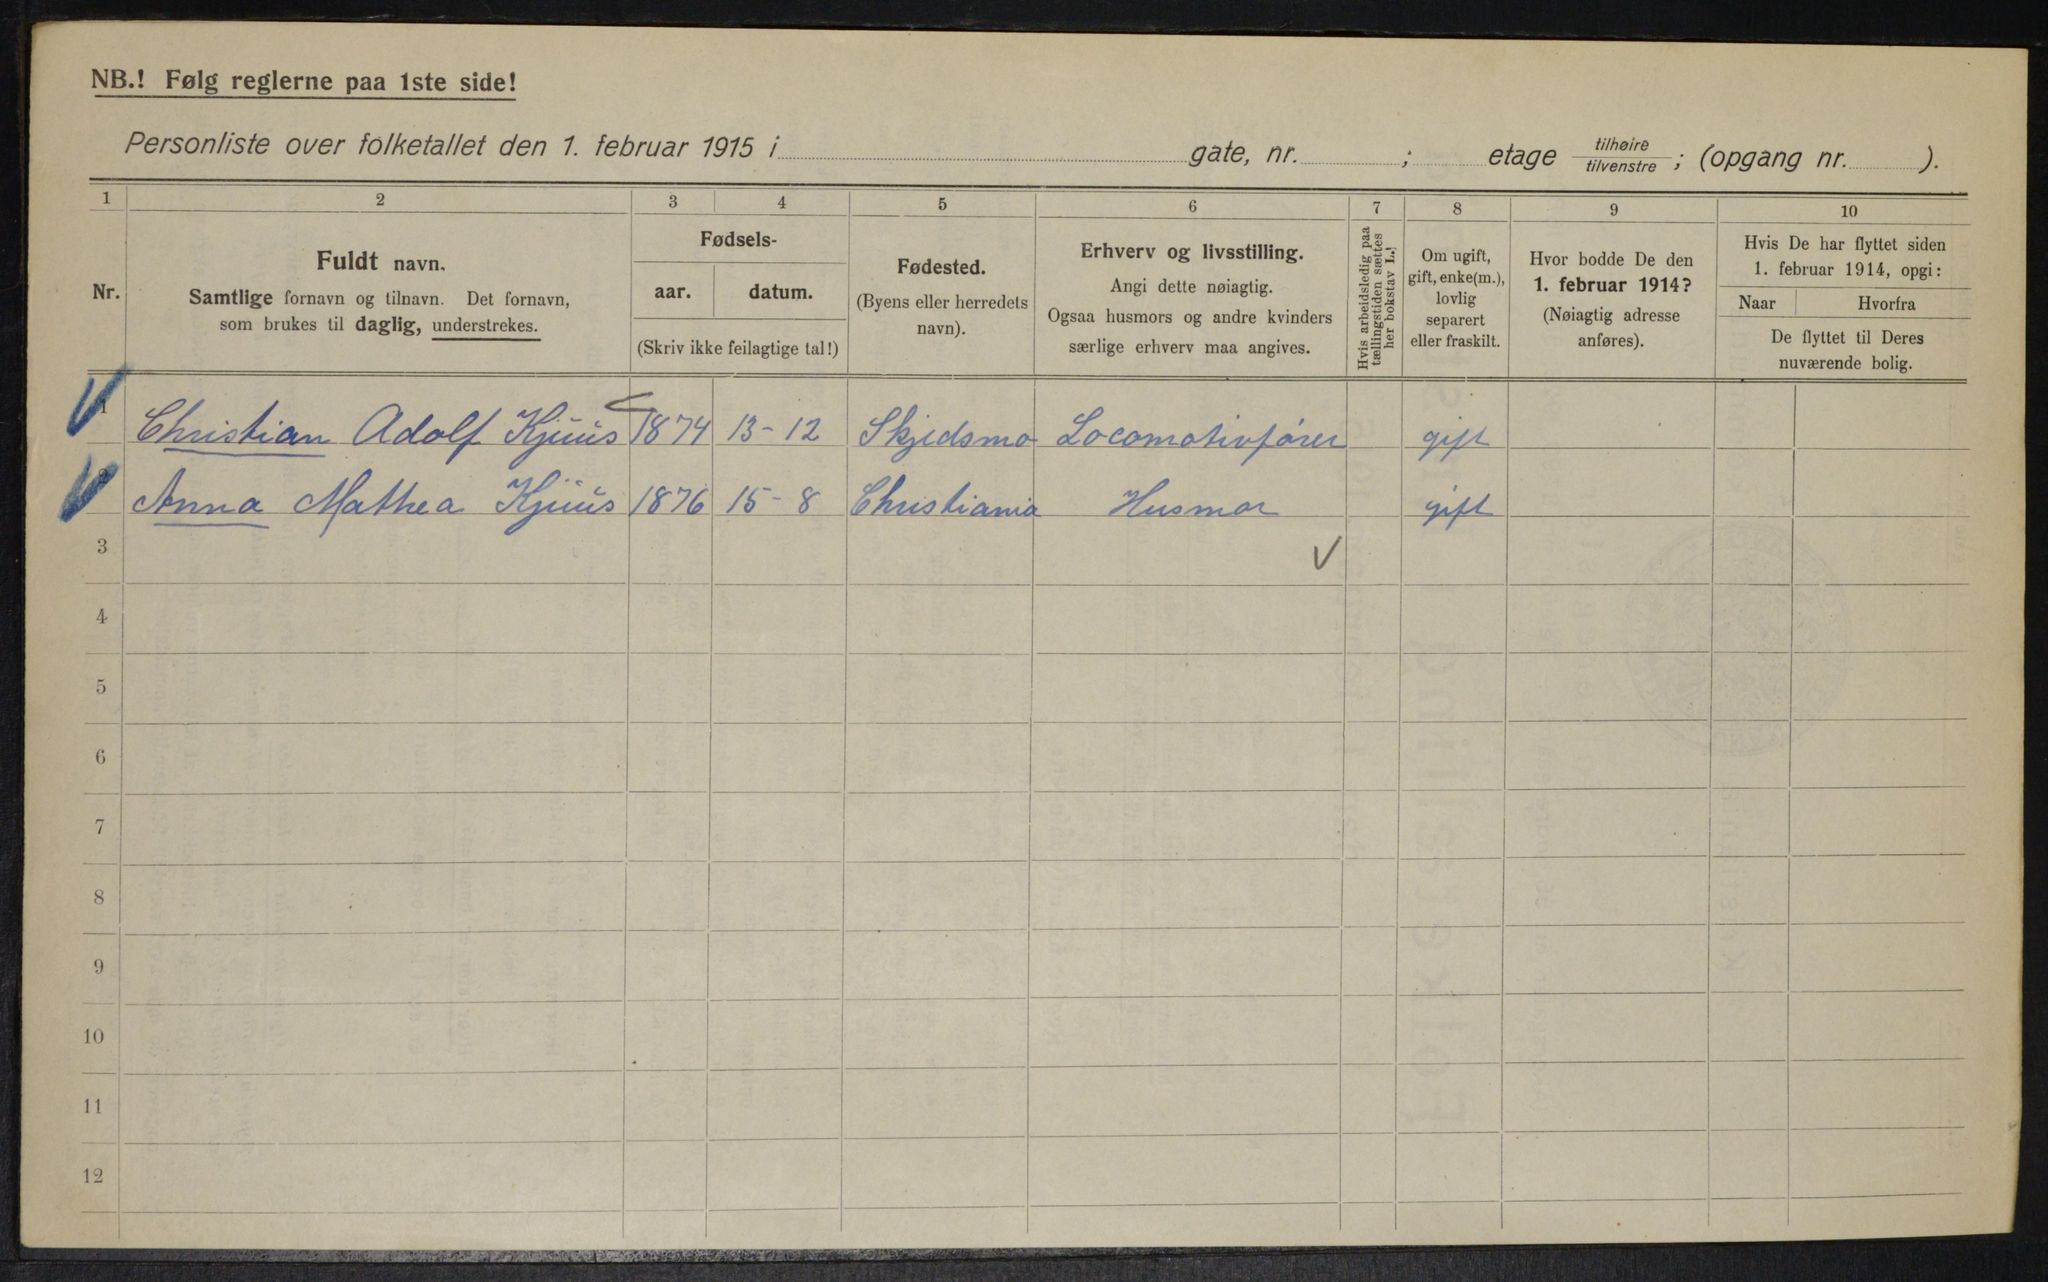 NB.! Følg reglerne paa 1ste side!
Personliste over folketallet den 1. februar 1915 i gate, nr. ; etage tilhøire tilvenstre ; (opgang nr. ).
1 2 3 4 5 6 7 8 9 10
Nr.
Fuldt navn.
Samtlige fornavn og tilnavn. Det fornavn,
som brukes til daglig, understrekes.
Fødsels-
aar. datum.
(Skriv ikke feilagtige tal!)
Fødested.
(Byens eller herredets
navn).
Erhverv og livsstilling.
Angi dette nøiagtig.
Ogsaa husmors og andre kvinders
særlige erhverv maa angives.
Hvis arbeidsledig paa
tællingstiden sættes
her bokstav L.!
Om ugift,
gift, enke(m.),
lovlig
separert
eller fraskilt.
Hvor bodde De den
1. februar 1914?
(Nøiagtig adresse
anføres).
Hvis De har flyttet siden
1. februar 1914, opgi:
Naar Hvorfra
De flyttet til Deres
nuværende bolig.
1 Christian Adolf Kjuus 1874 13-12 Skjedsmo Locomotivfører gift
2 Anna Mathea Kjuus 1876 15-8 Christiania Husmor gift
3
4
5
6
7
8
9
10
11
12